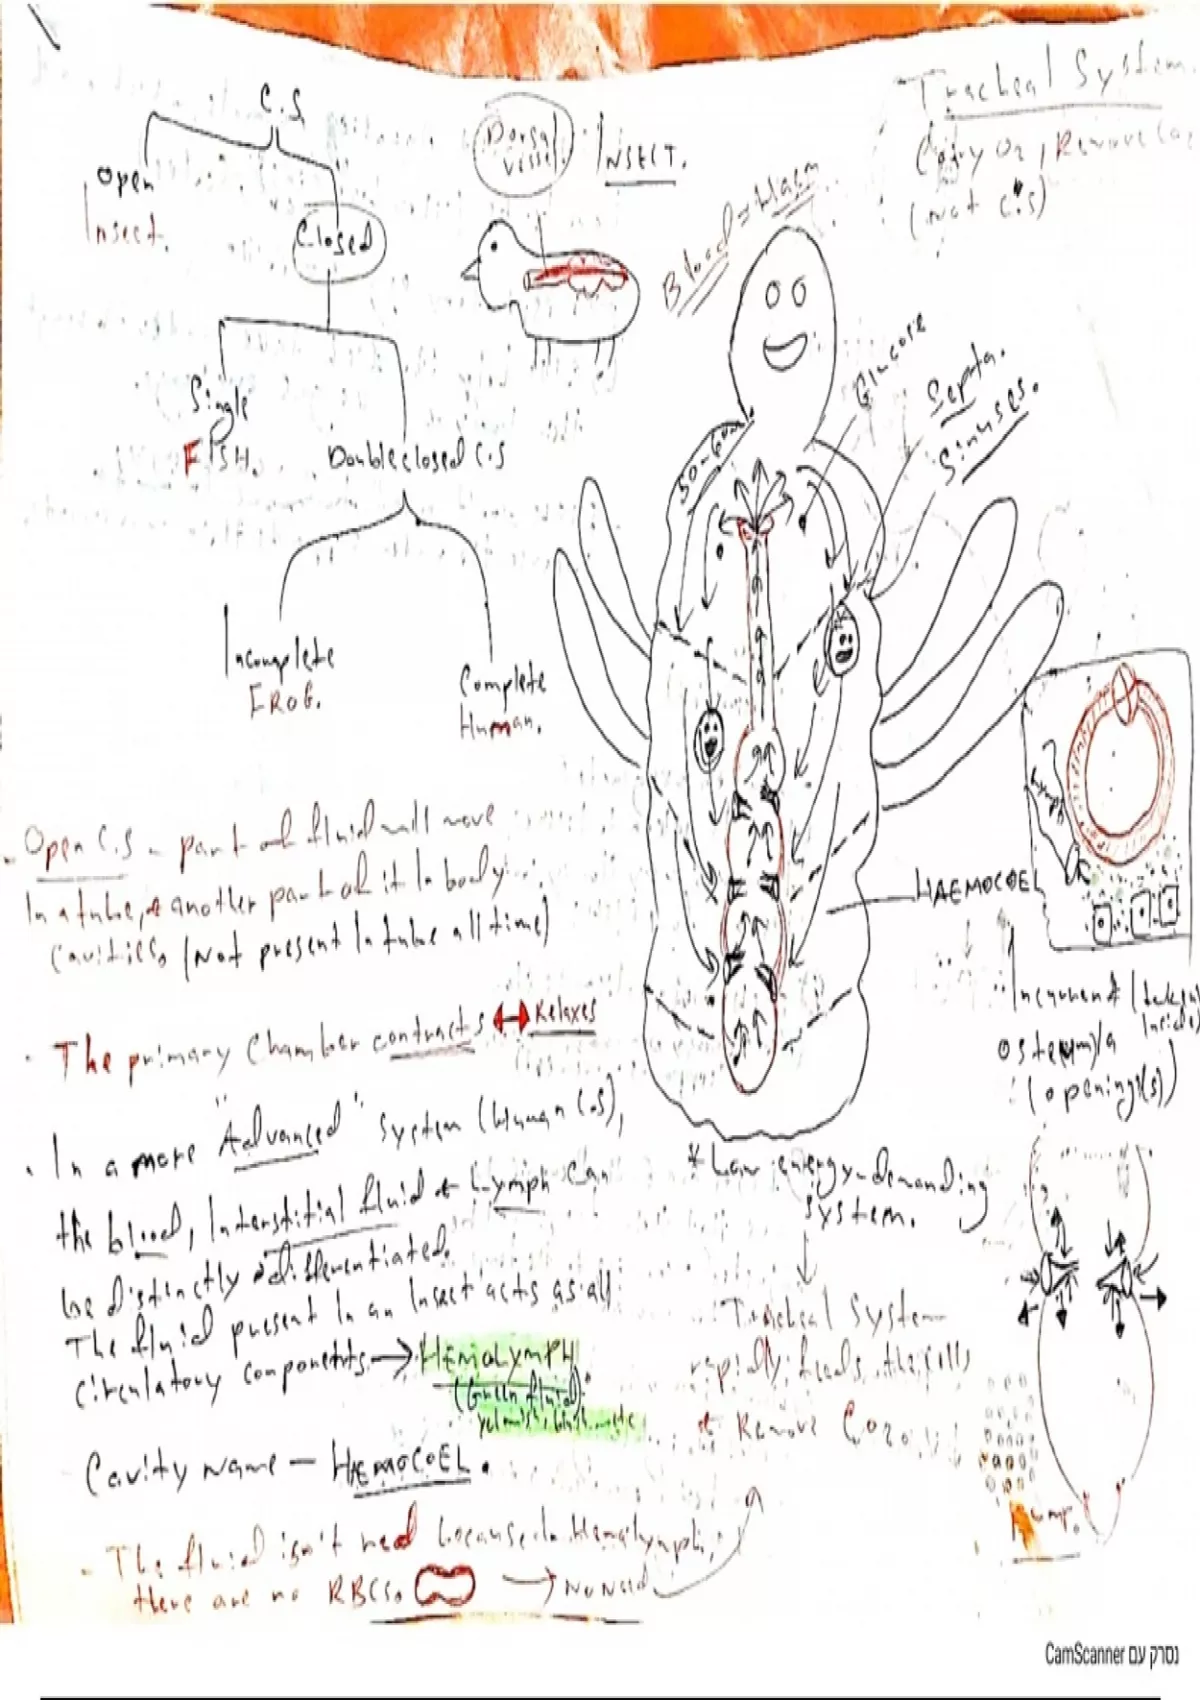 C.S
Open
Insect.
Closed
Single
FISH.
Double closed C.S
Incomplete
FROG.
Complete
Human.
Dorsal
vessel.
INSECT.
Tracheal System.
Carry O2, Remove Co2
(not C.S)
Blood = Haem
Glucose
Septa.
Sinuses.
HAEMOCOEL
Incurrent (takes
inside)
ostium/a
(opening(s))
- Open C.S - part of fluid will move
In a tube, & another part of it In body
cavities. (Not present In tube all time)
- The primary Chamber contracts ↔ Relaxes
- In a more "Advanced" system (Human C.S),
the blood, Interstitial fluid & Lymph can
be distinctly differentiated.
The fluid present In an Insect acts as all
circulatory components → HEMOLYMPH
(Green fluid)
Cavity name - HAEMOCOEL.
- The fluid isn't red because In Hemolymph,
there are no RBCs. → No Need
* Low energy-demanding
system.
Tracheal System
rapidly feeds the cells
& Remove Co2.
Pump.
CamScanner נסרק עם